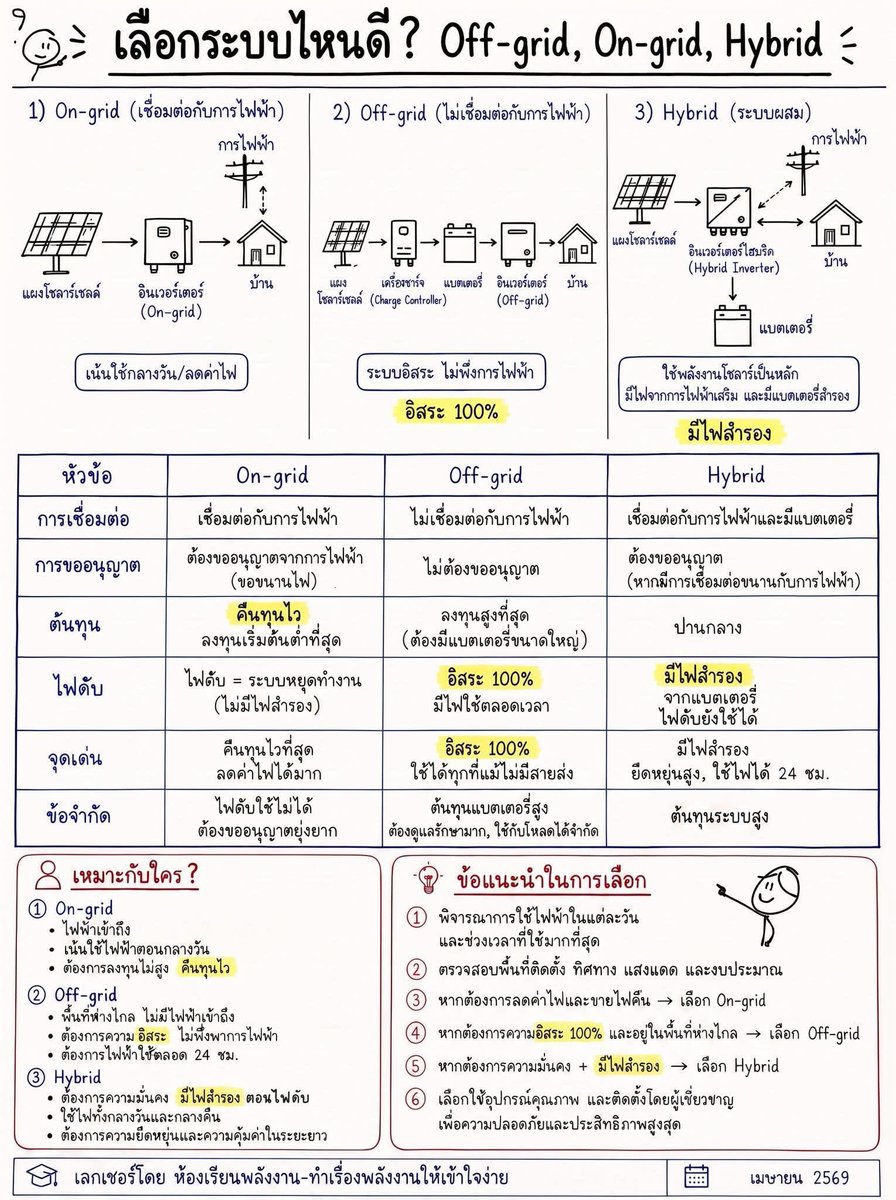 เลือกระบบไหนดี? Off-grid, On-grid, Hybrid
1) On-grid (เชื่อมต่อกับการไฟฟ้า)
การไฟฟ้า
แผงโซลาร์เซลล์
อินเวอร์เตอร์
(On-grid)
บ้าน
เน้นใช้กลางวัน/ลดค่าไฟ
2) Off-grid (ไม่เชื่อมต่อกับการไฟฟ้า)
แผง
โซลาร์เซลล์
เครื่องชาร์จ
(Charge Controller)
แบตเตอรี่
อินเวอร์เตอร์
(Off-grid)
บ้าน
ระบบอิสระ ไม่พึ่งการไฟฟ้า
อิสระ 100%
3) Hybrid (ระบบผสม)
การไฟฟ้า
แผงโซลาร์เซลล์
อินเวอร์เตอร์ไฮบริด
(Hybrid Inverter)
บ้าน
แบตเตอรี่
ใช้พลังงานโซลาร์เป็นหลัก
มีไฟจากการไฟฟ้าเสริม และมีแบตเตอรี่สำรอง
มีไฟสำรอง
หัวข้อ On-grid Off-grid Hybrid
การเชื่อมต่อ เชื่อมต่อกับการไฟฟ้า ไม่เชื่อมต่อกับการไฟฟ้า เชื่อมต่อกับการไฟฟ้าและมีแบตเตอรี่
การขออนุญาต
ต้องขออนุญาตจากการไฟฟ้า
(ขอขนานไฟ)
ไม่ต้องขออนุญาต
ต้องขออนุญาต
(หากมีการเชื่อมต่อขนานกับการไฟฟ้า)
ต้นทุน
คืนทุนไว
ลงทุนเริ่มต้นต่ำที่สุด
ลงทุนสูงที่สุด
(ต้องมีแบตเตอรี่ขนาดใหญ่)
ปานกลาง
ไฟดับ
ไฟดับ = ระบบหยุดทำงาน
(ไม่มีไฟสำรอง)
อิสระ 100%
มีไฟใช้ตลอดเวลา
มีไฟสำรอง
จากแบตเตอรี่
ไฟดับยังใช้ได้
จุดเด่น
คืนทุนไวที่สุด
ลดค่าไฟได้มาก
อิสระ 100%
ใช้ได้ทุกที่แม้ไม่มีสายส่ง
มีไฟสำรอง
ยืดหยุ่นสูง, ใช้ไฟได้ 24 ชม.
ข้อจำกัด
ไฟดับใช้ไม่ได้
ต้องขออนุญาตยุ่งยาก
ต้นทุนแบตเตอรี่สูง
ต้องดูแลรักษามาก, ใช้กับโหลดได้จำกัด
ต้นทุนระบบสูง
เหมาะกับใคร?
① On-grid
• ไฟฟ้าเข้าถึง
• เน้นใช้ไฟฟ้าตอนกลางวัน
• ต้องการลงทุนไม่สูง คืนทุนไว
② Off-grid
• พื้นที่ห่างไกล ไม่มีไฟฟ้าเข้าถึง
• ต้องการความอิสระ ไม่พึ่งพาการไฟฟ้า
• ต้องการไฟฟ้าใช้ตลอด 24 ชม.
③ Hybrid
• ต้องการความมั่นคง มีไฟสำรอง ตอนไฟดับ
• ใช้ไฟทั้งกลางวันและกลางคืน
• ต้องการความยืดหยุ่นและความคุ้มค่าในระยะยาว
ข้อแนะนำในการเลือก
① พิจารณาการใช้ไฟฟ้าในแต่ละวัน
และช่วงเวลาที่ใช้มากที่สุด
② ตรวจสอบพื้นที่ติดตั้ง ทิศทาง แสงแดด และงบประมาณ
③ หากต้องการลดค่าไฟและขายไฟคืน → เลือก On-grid
④ หากต้องการความอิสระ 100% และอยู่ในพื้นที่ห่างไกล → เลือก Off-grid
⑤ หากต้องการความมั่นคง + มีไฟสำรอง → เลือก Hybrid
⑥ เลือกใช้อุปกรณ์คุณภาพ และติดตั้งโดยผู้เชี่ยวชาญ
เพื่อความปลอดภัยและประสิทธิภาพสูงสุด
เลกเชอร์โดย ห้องเรียนพลังงาน-ทำเรื่องพลังงานให้เข้าใจง่าย
เมษายน 2569